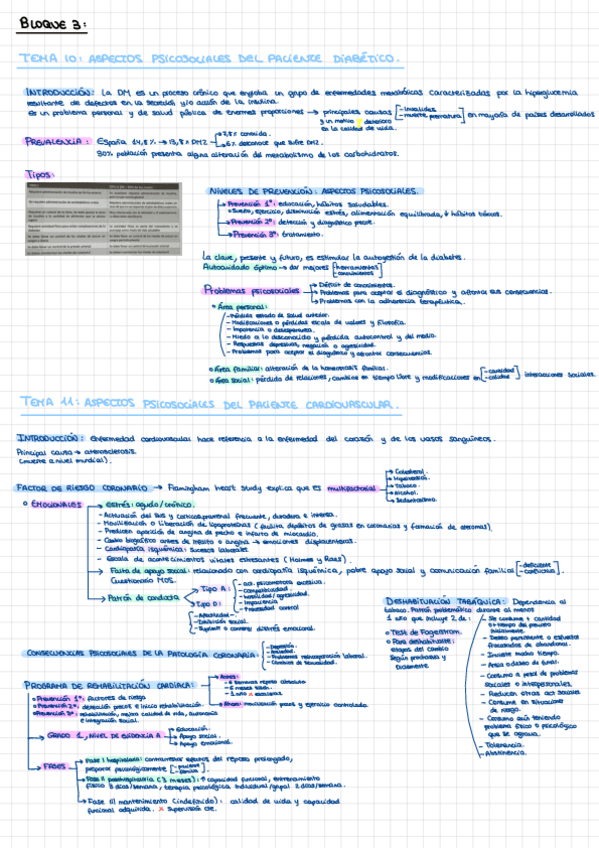 BLOQUE 3:
TEMA 10: ASPECTOS PSICOSOCIALES DEL PACIENTE DIABÉTICO.
INTRODUCCIÓN: La DM es un proceso crónico que engloba un grupo de enfermedades metabólicas caracterizadas por la hiperglucemia
resultante de defectos en la secreción y/o acción de la insulina.
Es un problema personal y de salud pública de enormes proporciones → principales causas - invalidez - muerte prematura en mayoría de países desarrollados
y un motivo deterioro
en la calidad de vida.
PREVALENCIA: España 14,8% → 13,8% DM2 → 7,8% conocida.
→ 6% desconoce que sufre DM2.
30% población presenta alguna alteración del metabolismo de los carbohidratos.
Tipos:
NIVELES DE PREVENCIÓN: ASPECTOS PSICOSOCIALES.
→ Prevención 1ª: educación, hábitos saludables.
Sueño, ejercicio, disminución estrés, alimentación equilibrada, hábitos tóxicos.
→ Prevención 2ª: detección y diagnóstico precoz.
→ Prevención 3ª: tratamiento.
La clave, presente y futuro, es estimular la autogestión de la diabetes.
Autocuidado óptimo → dar mejores - herramientas - conocimientos
Problemas psicosociales → Déficit de conocimientos.
→ Problemas para aceptar el diagnóstico y afrontar sus consecuencias.
→ Problemas con la adherencia terapéutica.
Área personal:
- Pérdida estado de salud anterior.
- Modificaciones o pérdidas escala de valores y filosofía.
- Impotencia o desesperanza.
- Miedo a lo desconocido y pérdida autocontrol y del medio.
- Respuestas depresivas, negación o agresividad.
- Problemas para aceptar el diagnóstico y afrontar consecuencias.
Área familiar: alteración de la homeostasis familiar.
Área social: pérdida de relaciones, cambios en tiempo libre y modificaciones en - cantidad - calidad interacciones sociales.
TEMA 11: ASPECTOS PSICOSOCIALES DEL PACIENTE CARDIOVASCULAR.
INTRODUCCIÓN: Enfermedad cardiovascular hace referencia a la enfermedad del corazón y de los vasos sanguíneos.
Principal causa → aterosclerosis.
(muerte a nivel mundial).
FACTOR DE RIESGO CORONARIO → Framingham heart study explica que es multifactorial
→ Colesterol.
→ Hipertensión.
→ Tabaco.
→ Alcohol.
→ Sedentarismo.
EMOCIONALES → Estrés: agudo/crónico.
- Activación del SNS y corticosuprarrenal frecuente, duradera e intensa.
- Movilización o liberación de lipoproteínas (facilita depósitos de grasas en coronarias y formación de ateromas).
- Predicen aparición de angina de pecho e infarto de miocardio.
- Cambio biográfico antes de infarto o angina → emociones displacenteras.
- Cardiopatía isquémica: sucesos laborales.
- Escala de acontecimientos vitales estresantes (Holmes y Rahe).
→ Falta de apoyo social: relacionado con cardiopatía isquémica, pobre apoyo social y comunicación familiar - deficiente - conflictiva.
Cuestionario MOS.
→ Patrón de conducta → Tipo A: - act. psicomotora excesiva.
- Competitividad.
- Hostilidad/agresividad.
- Impaciencia
- Necesidad control
→ Tipo D: - Afectividad -.
- Inhibición social.
- Suprimir o contener distrés emocional.
DESHABITUACIÓN TABÁQUICA: Dependencia al
tabaco. Patrón problemático durante al menos
1 año que incluye 2 de:
Test de Fagerstrom.
Para deshabituarse:
etapas del cambio
según Prochaska y
Diclemente
- Se consume + cantidad
o + tiempo del previsto
inicialmente.
- Deseo persistente o esfuerzos
fracasados de abandonar.
- Invierte mucho tiempo.
- Ansia o deseo de fumar.
- Consumo a pesar de problemas
sociales o interpersonales.
- Reducción otras act sociales.
- Consume en situaciones
de riesgo.
- Consumo aún teniendo
problema físico o psicológico
que se agrava.
- Tolerancia.
- Abstinencia.
CONSECUENCIAS PSICOSOCIALES DE LA PATOLOGÍA CORONARIA:
- Depresión.
- Ansiedad.
- Problemas reincorporación laboral.
- Cambios de sexualidad.
PROGRAMA DE REHABILITACIÓN CARDIACA:
→ Antes:
- 6 semanas reposo absoluto
- 6 meses sillón.
- 1 año escaleras.
→ Ahora: movilización precoz y ejercicio controlado.
Prevención 1ª: factores de riesgo.
Prevención 2ª: detección precoz e inicio rehabilitación.
Prevención 3ª: rehabilitación, mejora calidad de vida, autonomía
e integración social.
→ GRADO 1, NIVEL DE EVIDENCIA A
→ Educación.
→ Apoyo social.
→ Apoyo emocional.
→ FASES → Fase I hospitalaria: contrarrestar efectos del reposo prolongado,
preparar psicológicamente - paciente - familia
→ Fase II posthospitalaria (3 meses): capacidad funcional, entrenamiento
físico 3 días/semana, terapia psicológica individual/grupal 2 días/semana.
→ Fase III mantenimiento (indefinido): calidad de vida y capacidad
funcional adquirida. x supervisión cte.